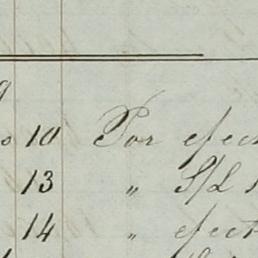 10 Por efect
13 " S/L
14 " efect